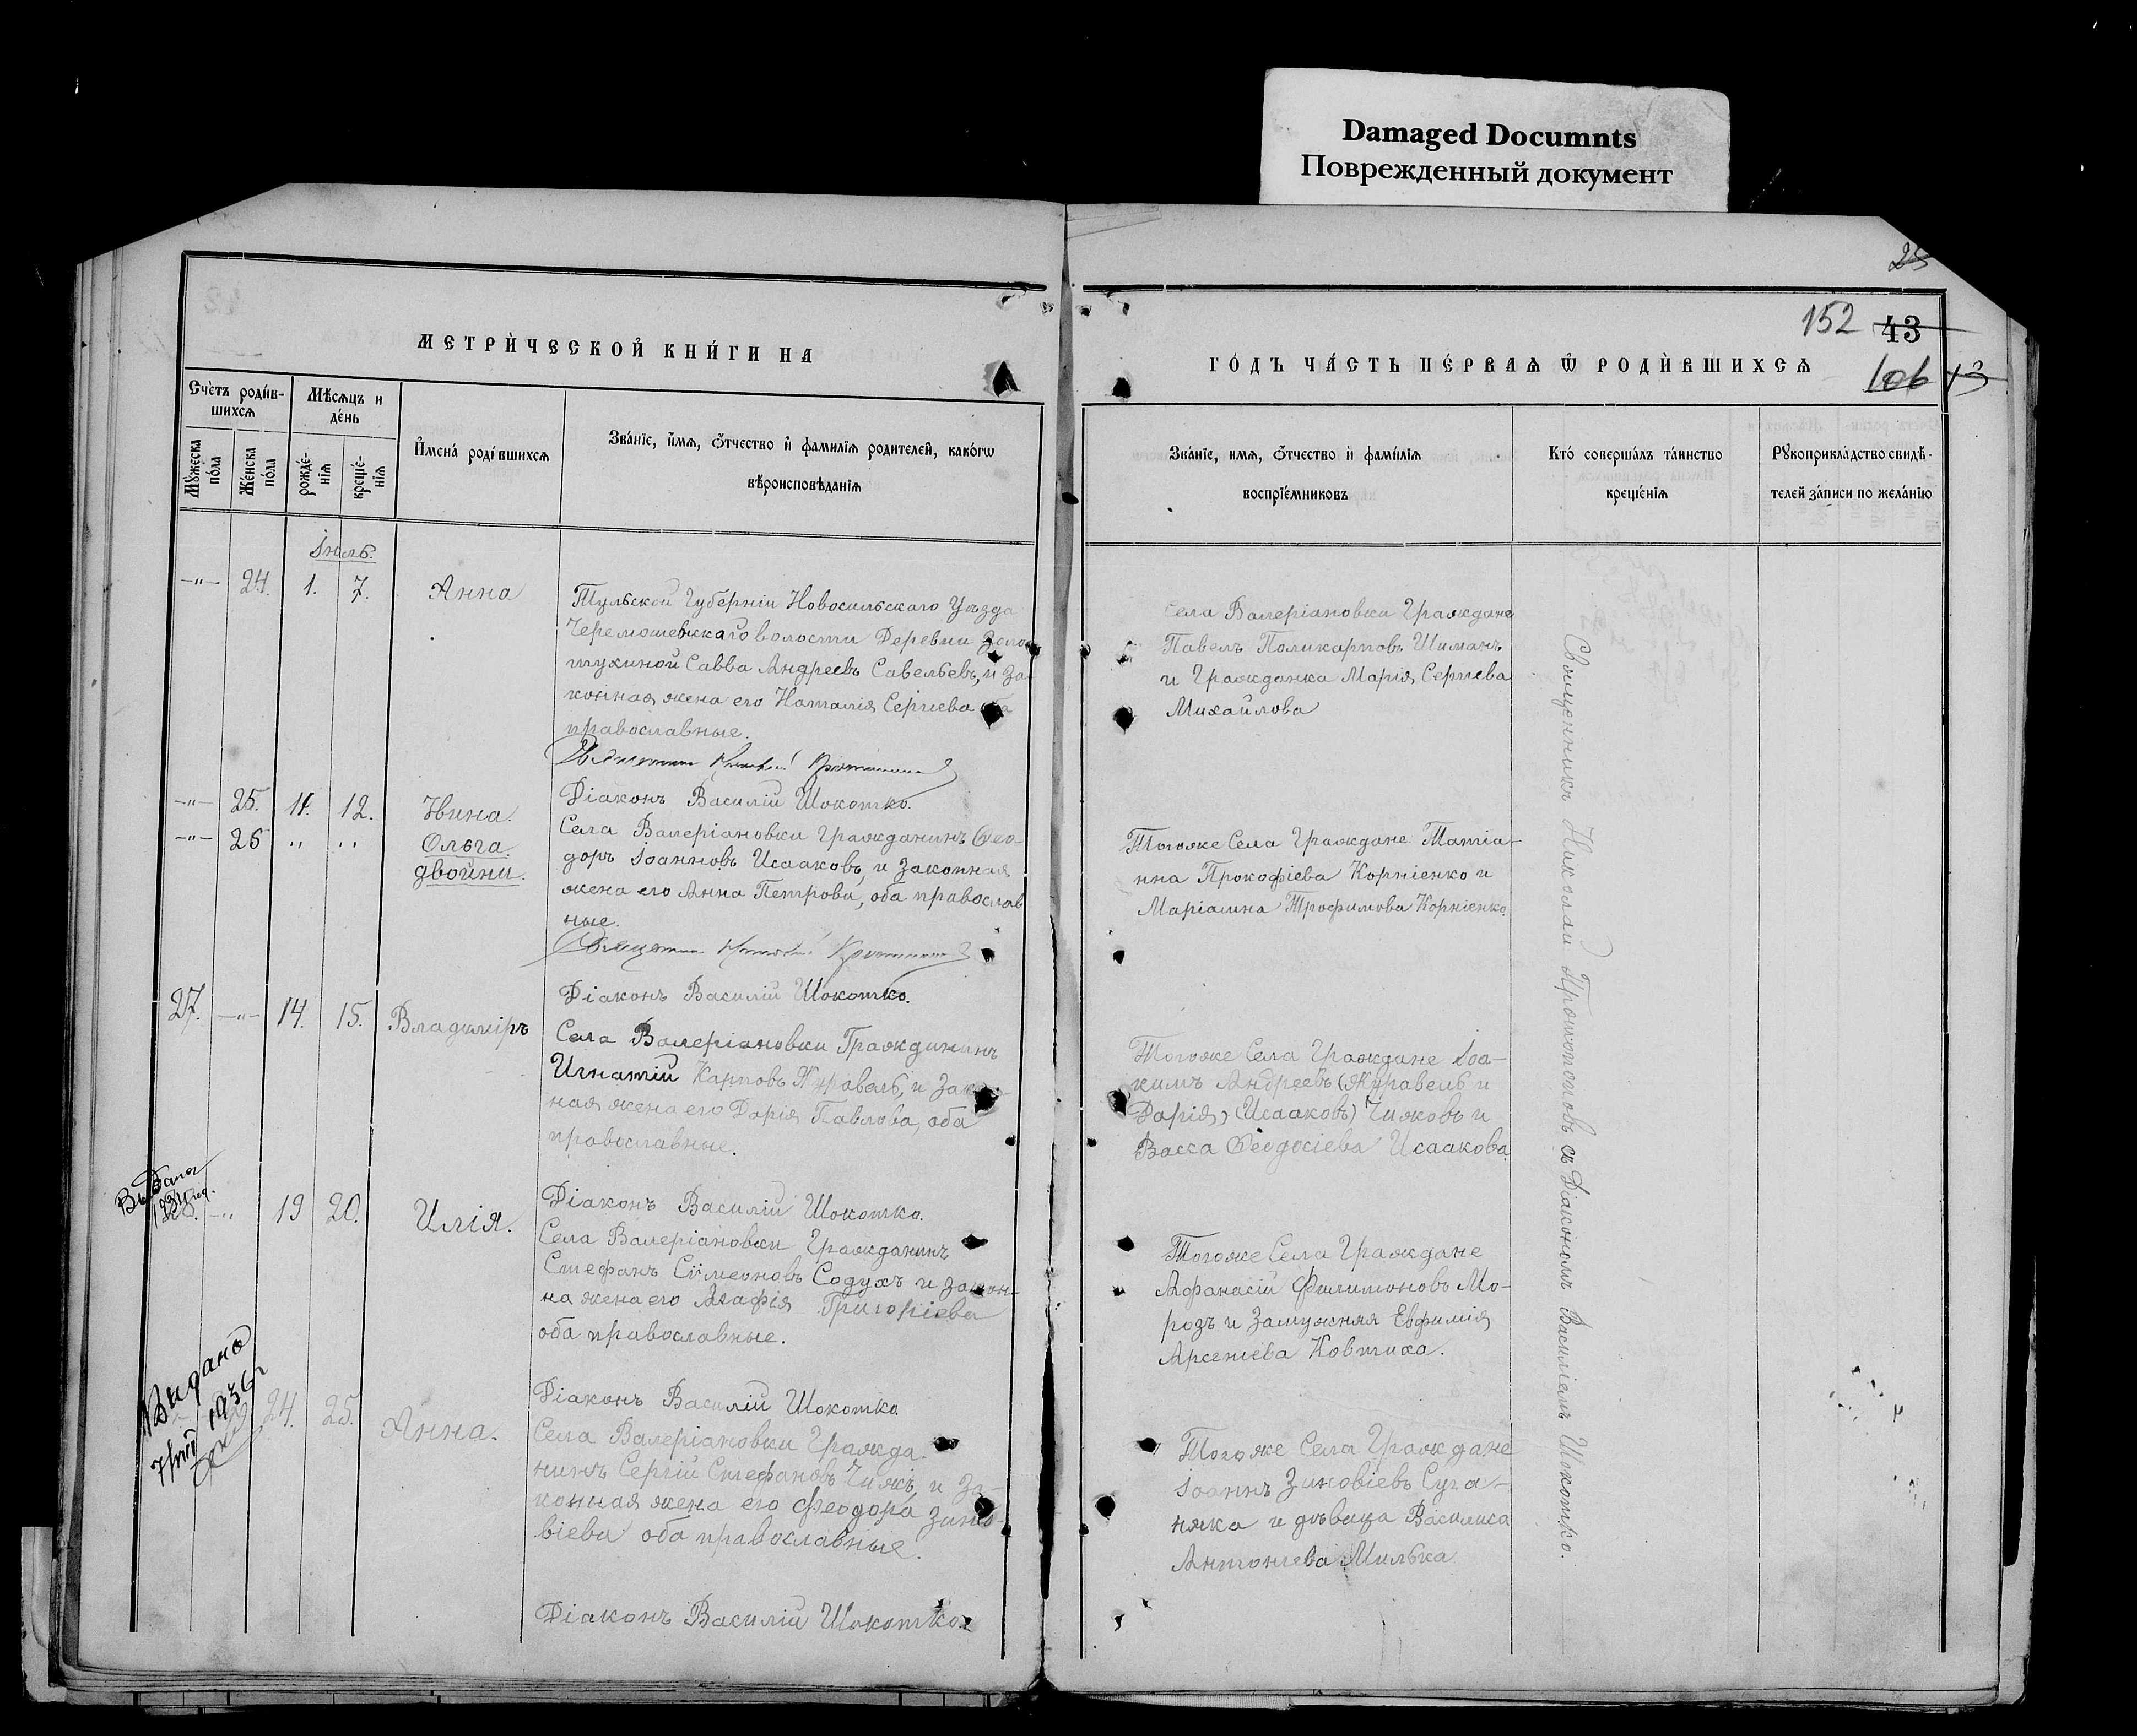 Damaged Documnts
Поврежденный документ
25
152 43
106 13
МЕТРИ́ЧЕСКОЙ КНИ́ГИ НА
ГО́ДЪ ЧА́СТЬ ПЕ́РВАѦ Ѽ РОДИ́ВШИХСѦ
Сче́тъ роди́в-
шихсѧ
Мѣ́сѧцъ и
де́нь
Мꙋ́жеска по́ла
Же́нска по́ла
рожде́-
нїѧ
креще́-
нїѧ
И҆мена̀ роди́вшихсѧ
Зва́нїе, и҆́мѧ, ѻ҆́тчество и҆ фамилїѧ родителей, како́гѡ
вѣроисповѣ́данїѧ
Зва́нїе, имѧ, ѻ҆́тчество и҆ фами́лїѧ
воспрїе́мниковъ
Кто́ соверша́лъ та́инство
креще́нїѧ
Рꙋкоприкла́дство свидѣ́-
телей за́писи по жела́нїю
Іюль.
—"— 24. 1. 7. Анна
Тульской Губерніи Новосильскаго Уѣзда
Черемошевскаго волости Деревни Золо-
тухиной Савва Андреевъ Савельевъ, и за-
конная жена его Наталія Сергіева оба
православные.
Діаконъ Василій Шокотко.
Села Валеріановки Граждане
Павелъ Поликарповъ Шиманъ
и Гражданка Марія Сергіева
Михайлова
—"— 25. 11. 12. Нина.
—"— 26 " " Ольга
двойни.
Села Валеріановки Гражданинъ Ѳео-
доръ Іоанновъ Исааковъ, и законная
жена его Анна Петрова, оба православ
ные.
Діаконъ Василій Шокотко.
Тогоже Села Граждане: Татіа-
нна Прокофіева Корніенко и
Маріамна Трофимова Корніенко.
27. —"— 14. 15. Владиміръ
Села Валеріановки Гражданинъ
Игнатій Карповъ Журавель, и Закон-
ная жена его Дарія Павлова, оба
православные.
Діаконъ Василій Шокотко.
Тогоже Села Граждане Іоа-
кимъ Андреевъ (Журавель и
Дарія) (Исааковъ) Чижовъ и
Васса Ѳеодосіева Исаакова.
Выдана
28. —" 19 20. Илія.
Села Валеріановки Гражданинъ
Стефанъ Сѵмеоновъ Содухъ и закон-
на жена его Агафія Григоріева
оба православные.
Діаконъ Василій Шокотко
Тогоже Села Граждане
Афанасій Филимоновъ Мо-
розъ и Замужняя Евфимія
Арсеніева Ковтиха.
Видано
1936 г
24. 25. Анна.
Села Валеріановки Гражда
нинъ Сергій Стефановъ Чижъ, и За-
конная жена его Феодора Зино-
віева оба православные.
Діаконъ Василій Шокотко
Тогоже Села Граждане
Іоаннъ Зиновіевъ Суга-
няка и дѣвица Василиса
Антоніева Милька
Священникъ Николай Протопоповъ съ Діакономъ Василіемъ Шокотко.